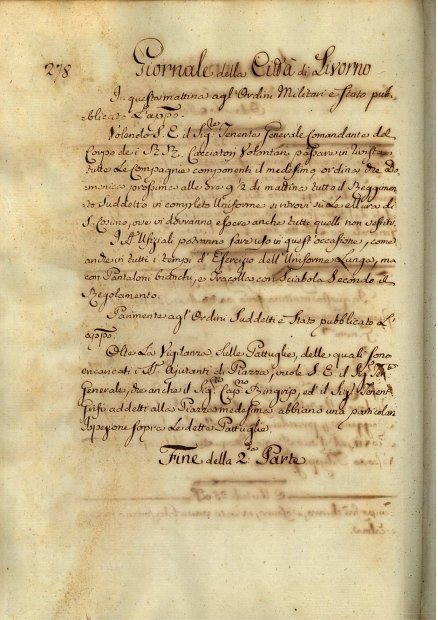 278 Giornale della Città di Livorno
In questa mattina agl'Ordini Militari è stato pub-
blicato L'appo:
Volendo S. E. il Sigre Tenente Generale Comandante del
Corpo dei RR. Cacciatori Volontari passare in rivista
tutte Le Compagnie componenti il medesimo ordina che Do-
menica prossima alle Ore 9 1/2 di mattina tutto il Reggimen-
to Suddetto in completo Uniforme si trovi su Le
S. Cosimo, ove vi dovranno essere anche tutti quelli non vestiti.
I SS. Ufiziali potranno fare uso in quest'occasione, come
anche in tutti i tempi d'Esercizio dell'Uniforme Lunga, ma
con Pantaloni bianchi, e Tracolla con Sciabola Secondo il
Regolamento.
Parimente agl'Ordini Suddetti è Stato pubblicato L'
appo:
Oltre La Vigilanza Sulle Pattuglie, delle quali sono
encaricati i SS. Ajutanti di Piazza, vuole S. E. il Sigre
Generale, che anche il Sigre Capno ed il Sigre Tenente
Grifi addetti alla Piazza medesima abbiano una particolar
Ispezione sopra Le dette Pattuglie.
Fine della 2da Parte